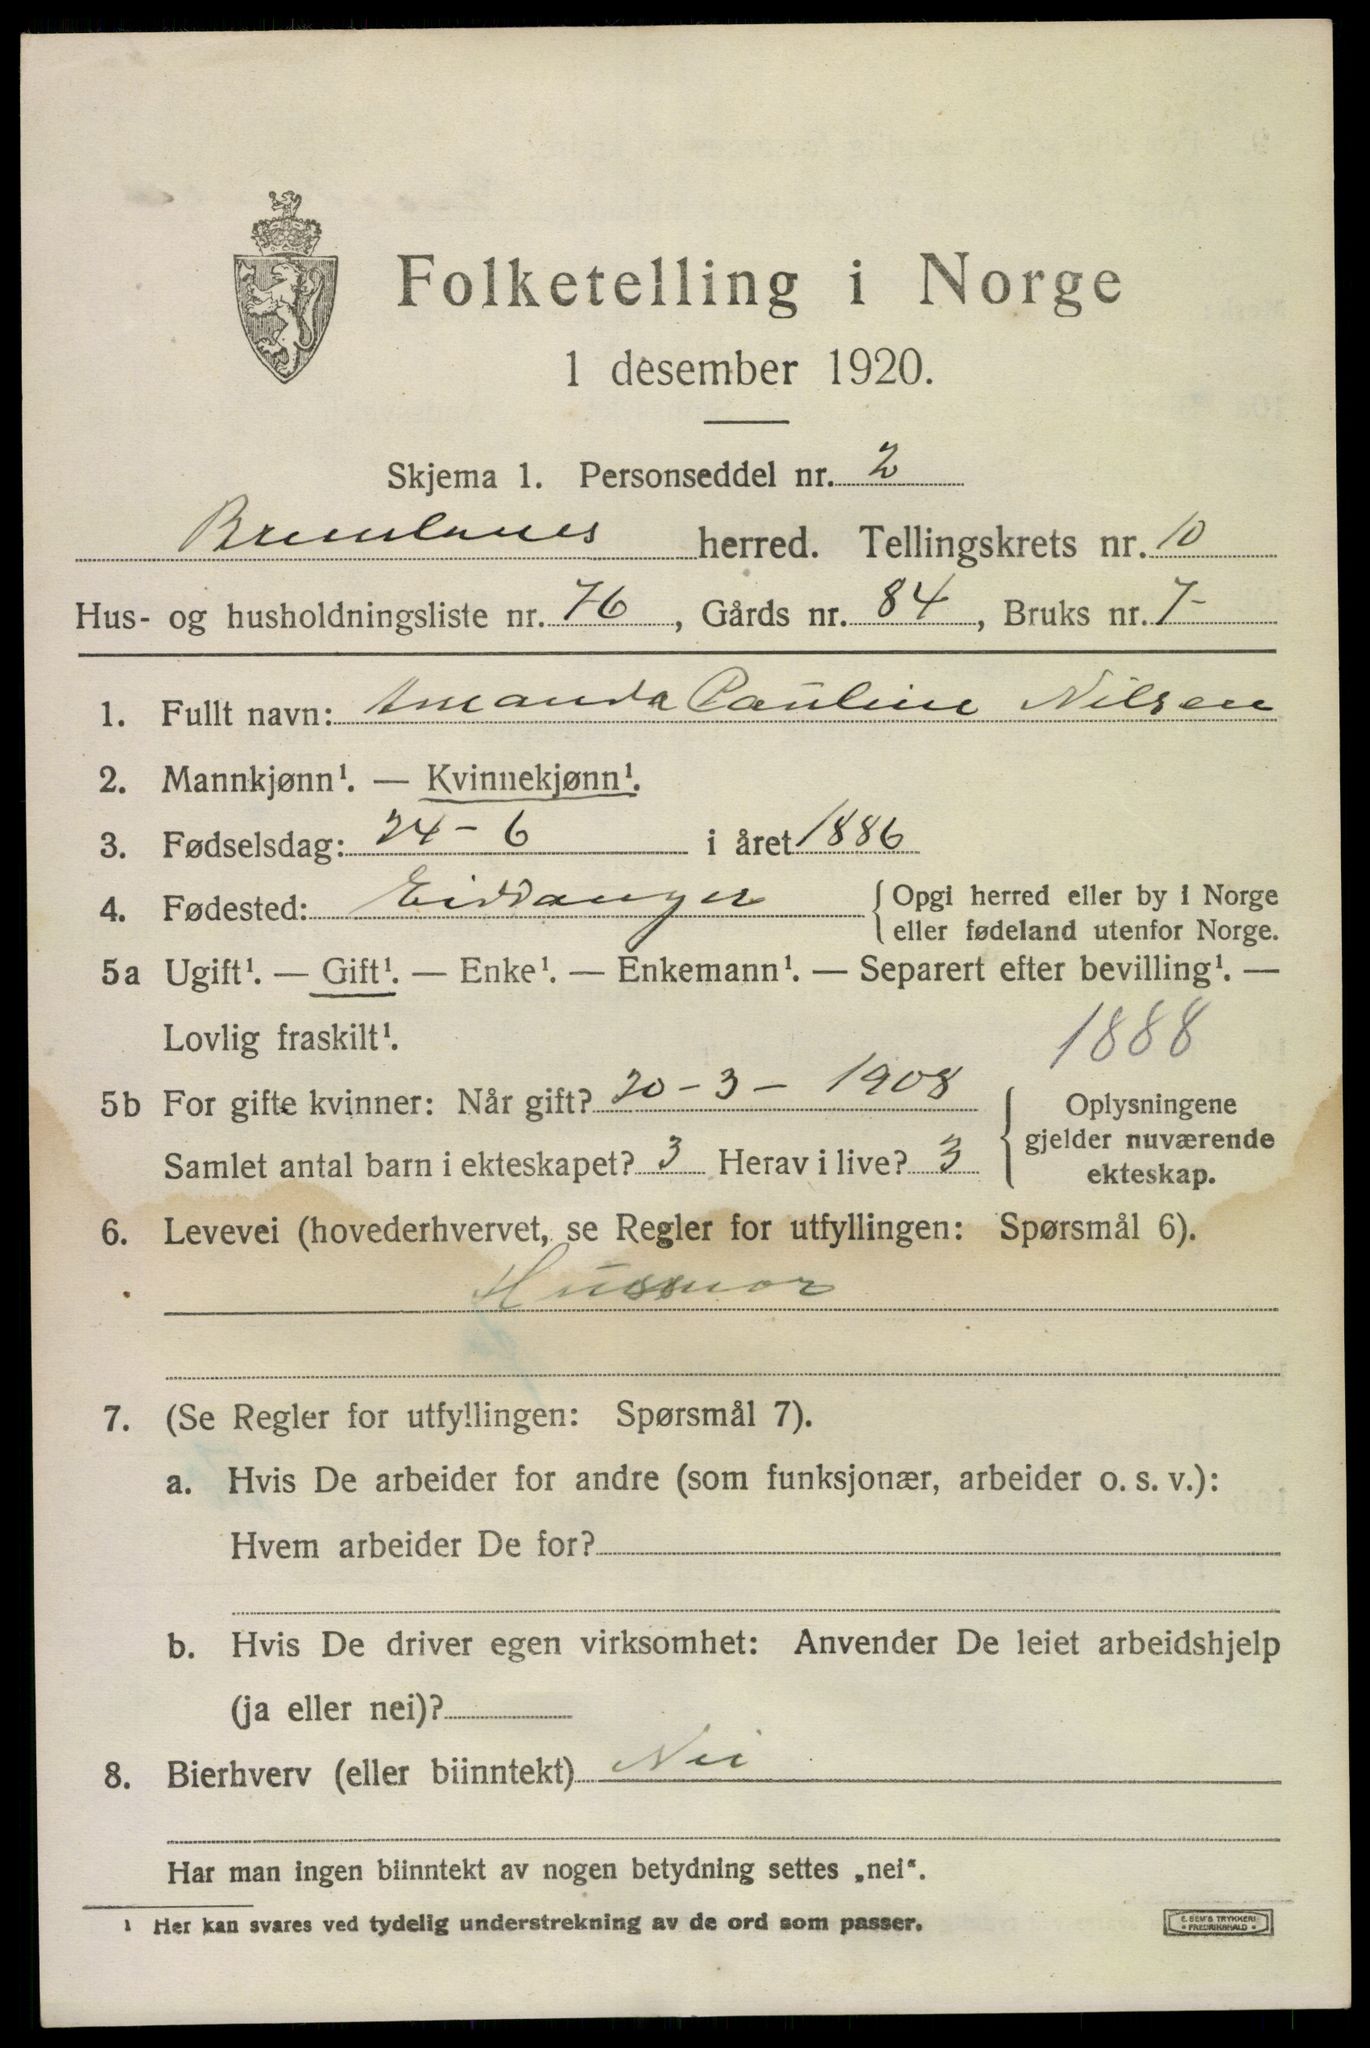 Folketelling i Norge
1 desember 1920.
Skjema 1. Personseddel nr. 2
Brunlanes herred. Tellingskrets nr. 10
Hus- og husholdningsliste nr. 76, Gårds nr. 84, Bruks nr. 7-
1. Fullt navn: Amanda Pauline Nilsen
2. Mannkjønn¹. — Kvinnekjønn¹.
3. Fødselsdag: 24-6 i året 1886
4. Fødested: Eidanger { Opgi herred eller by i Norge
eller fødeland utenfor Norge.
5a Ugift¹. — Gift¹. — Enke¹. — Enkemann¹. — Separert efter bevilling¹. —
Lovlig fraskilt¹. 1888
5b For gifte kvinner: Når gift? 20-3-1908
Samlet antal barn i ekteskapet? 3 Herav i live? 3
{ Oplysningene
gjelder nuværende
ekteskap.
6. Levevei (hovederhvervet, se Regler for utfyllingen: Spørsmål 6).
Husmor
7. (Se Regler for utfyllingen: Spørsmål 7).
a. Hvis De arbeider for andre (som funksjonær, arbeider o. s. v.):
Hvem arbeider De for?
b. Hvis De driver egen virksomhet: Anvender De leiet arbeidshjelp
(ja eller nei)?
8. Bierhverv (eller biinntekt) Nei
Har man ingen biinntekt av nogen betydning settes „nei“.
¹ Her kan svares ved tydelig understrekning av de ord som passer.
E. SEM'S TRYKKERI
• FREDRIKSHALD •